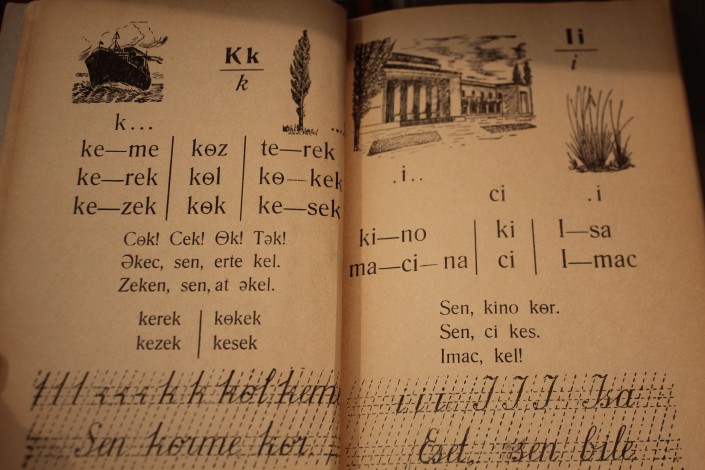 Kk
k
k...
ke—me | kɵz | te—rek
ke—rek | kɵl | kɵ—kek
ke—zek | kɵk | ke—sek
Cɵk! Cek! Ɵk! Tək!
Əkec, sen, erte kel.
Zeken, sen, at əkel.
kerek | kɵkek
kezek | kesek
k k kɵl, kem
Sen kɵrme kɵr.
Ii
i
.i..
ci
.i
ki—no | ki | I—sa
ma—ci—na | ci | I—mac
Sen, kino kɵr.
Sen, ci kes.
Imac, kel!
i i i I I I Isa
Eset, sen bile